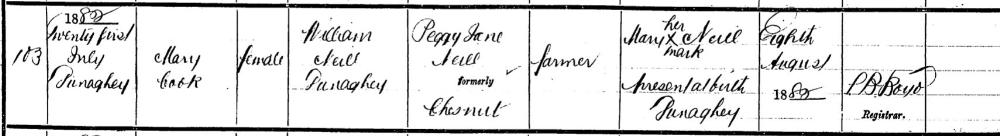 103
1882
Twenty first
July
Tunaghey
Mary
Cook
female
William
Neill
Tunaghey
Peggy Jane
Neill
formerly
Chesnut
farmer
her
Mary X Neill
mark
present at birth
Tunaghey
Eighth
August
1882
P B Boyd
Registrar.